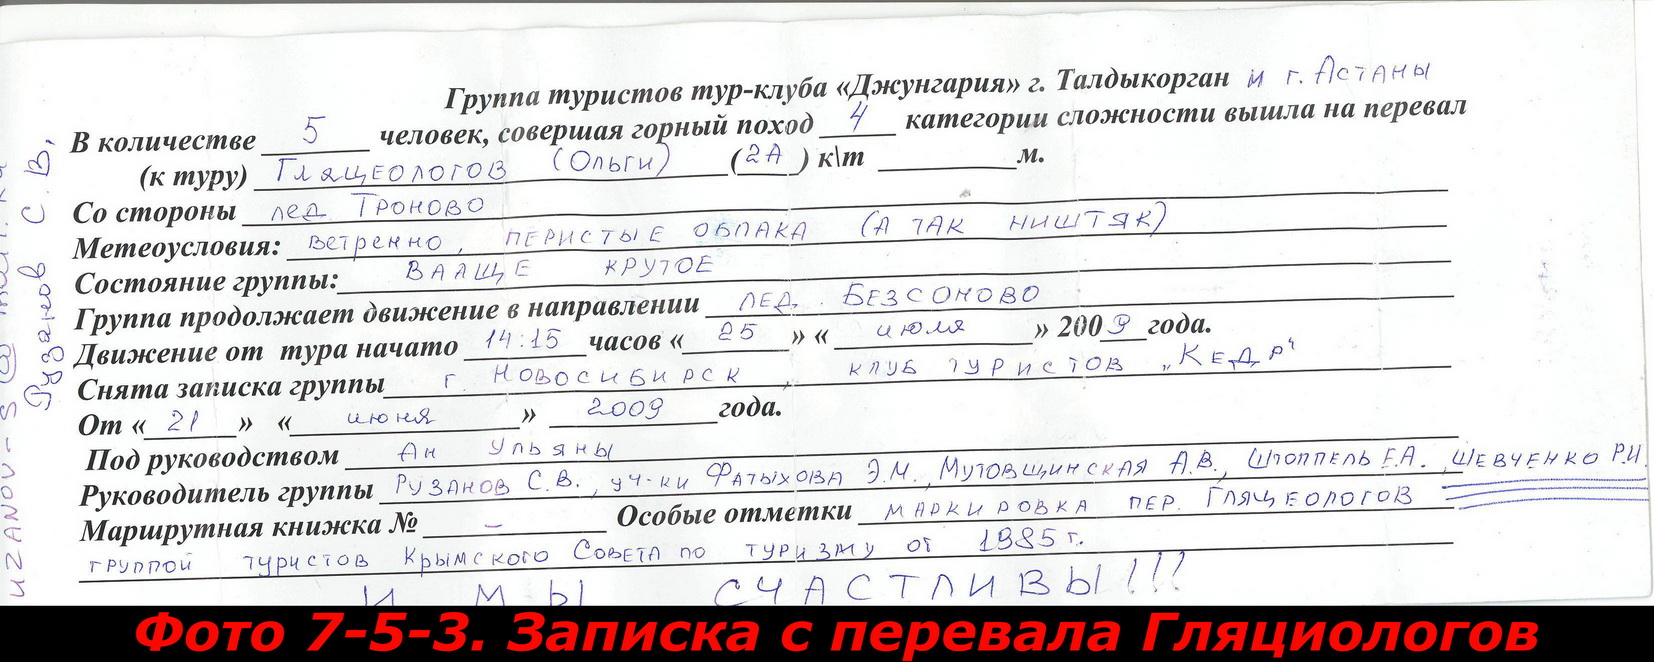 Группа туристов тур-клуба «Джунгария» г. Талдыкорган и г. Астаны
В количестве 5 человек, совершая горный поход 4 категории сложности вышла на перевал
(к туру) Гляцеологов (Ольги) (2А) к\т м.
Со стороны лед Троново
Метеоусловия: ветренно, перистые облака (а так ништяк)
Состояние группы: ваще крутое
Группа продолжает движение в направлении лед. Безсоново
Движение от тура начато 14:15 часов «25» «июля» 2009 года.
Снята записка группы г. Новосибирск, клуб туристов „Кедр“
От «21» «июня» 2009 года.
Под руководством Ан Ульяны
Руководитель группы Рузанов С.В., уч-ки Фатыхова Э.М., Мутовщинская А.В., Штоппель Е.А., Шевченко Р.И.
Маршрутная книжка № – Особые отметки маркировка пер. Гляцеологов
группой туристов Крымского Совета по туризму от 1985 г.
И мы счастливы!!!
Рузанов С.В,
Фото 7-5-3. Записка с перевала Гляциологов